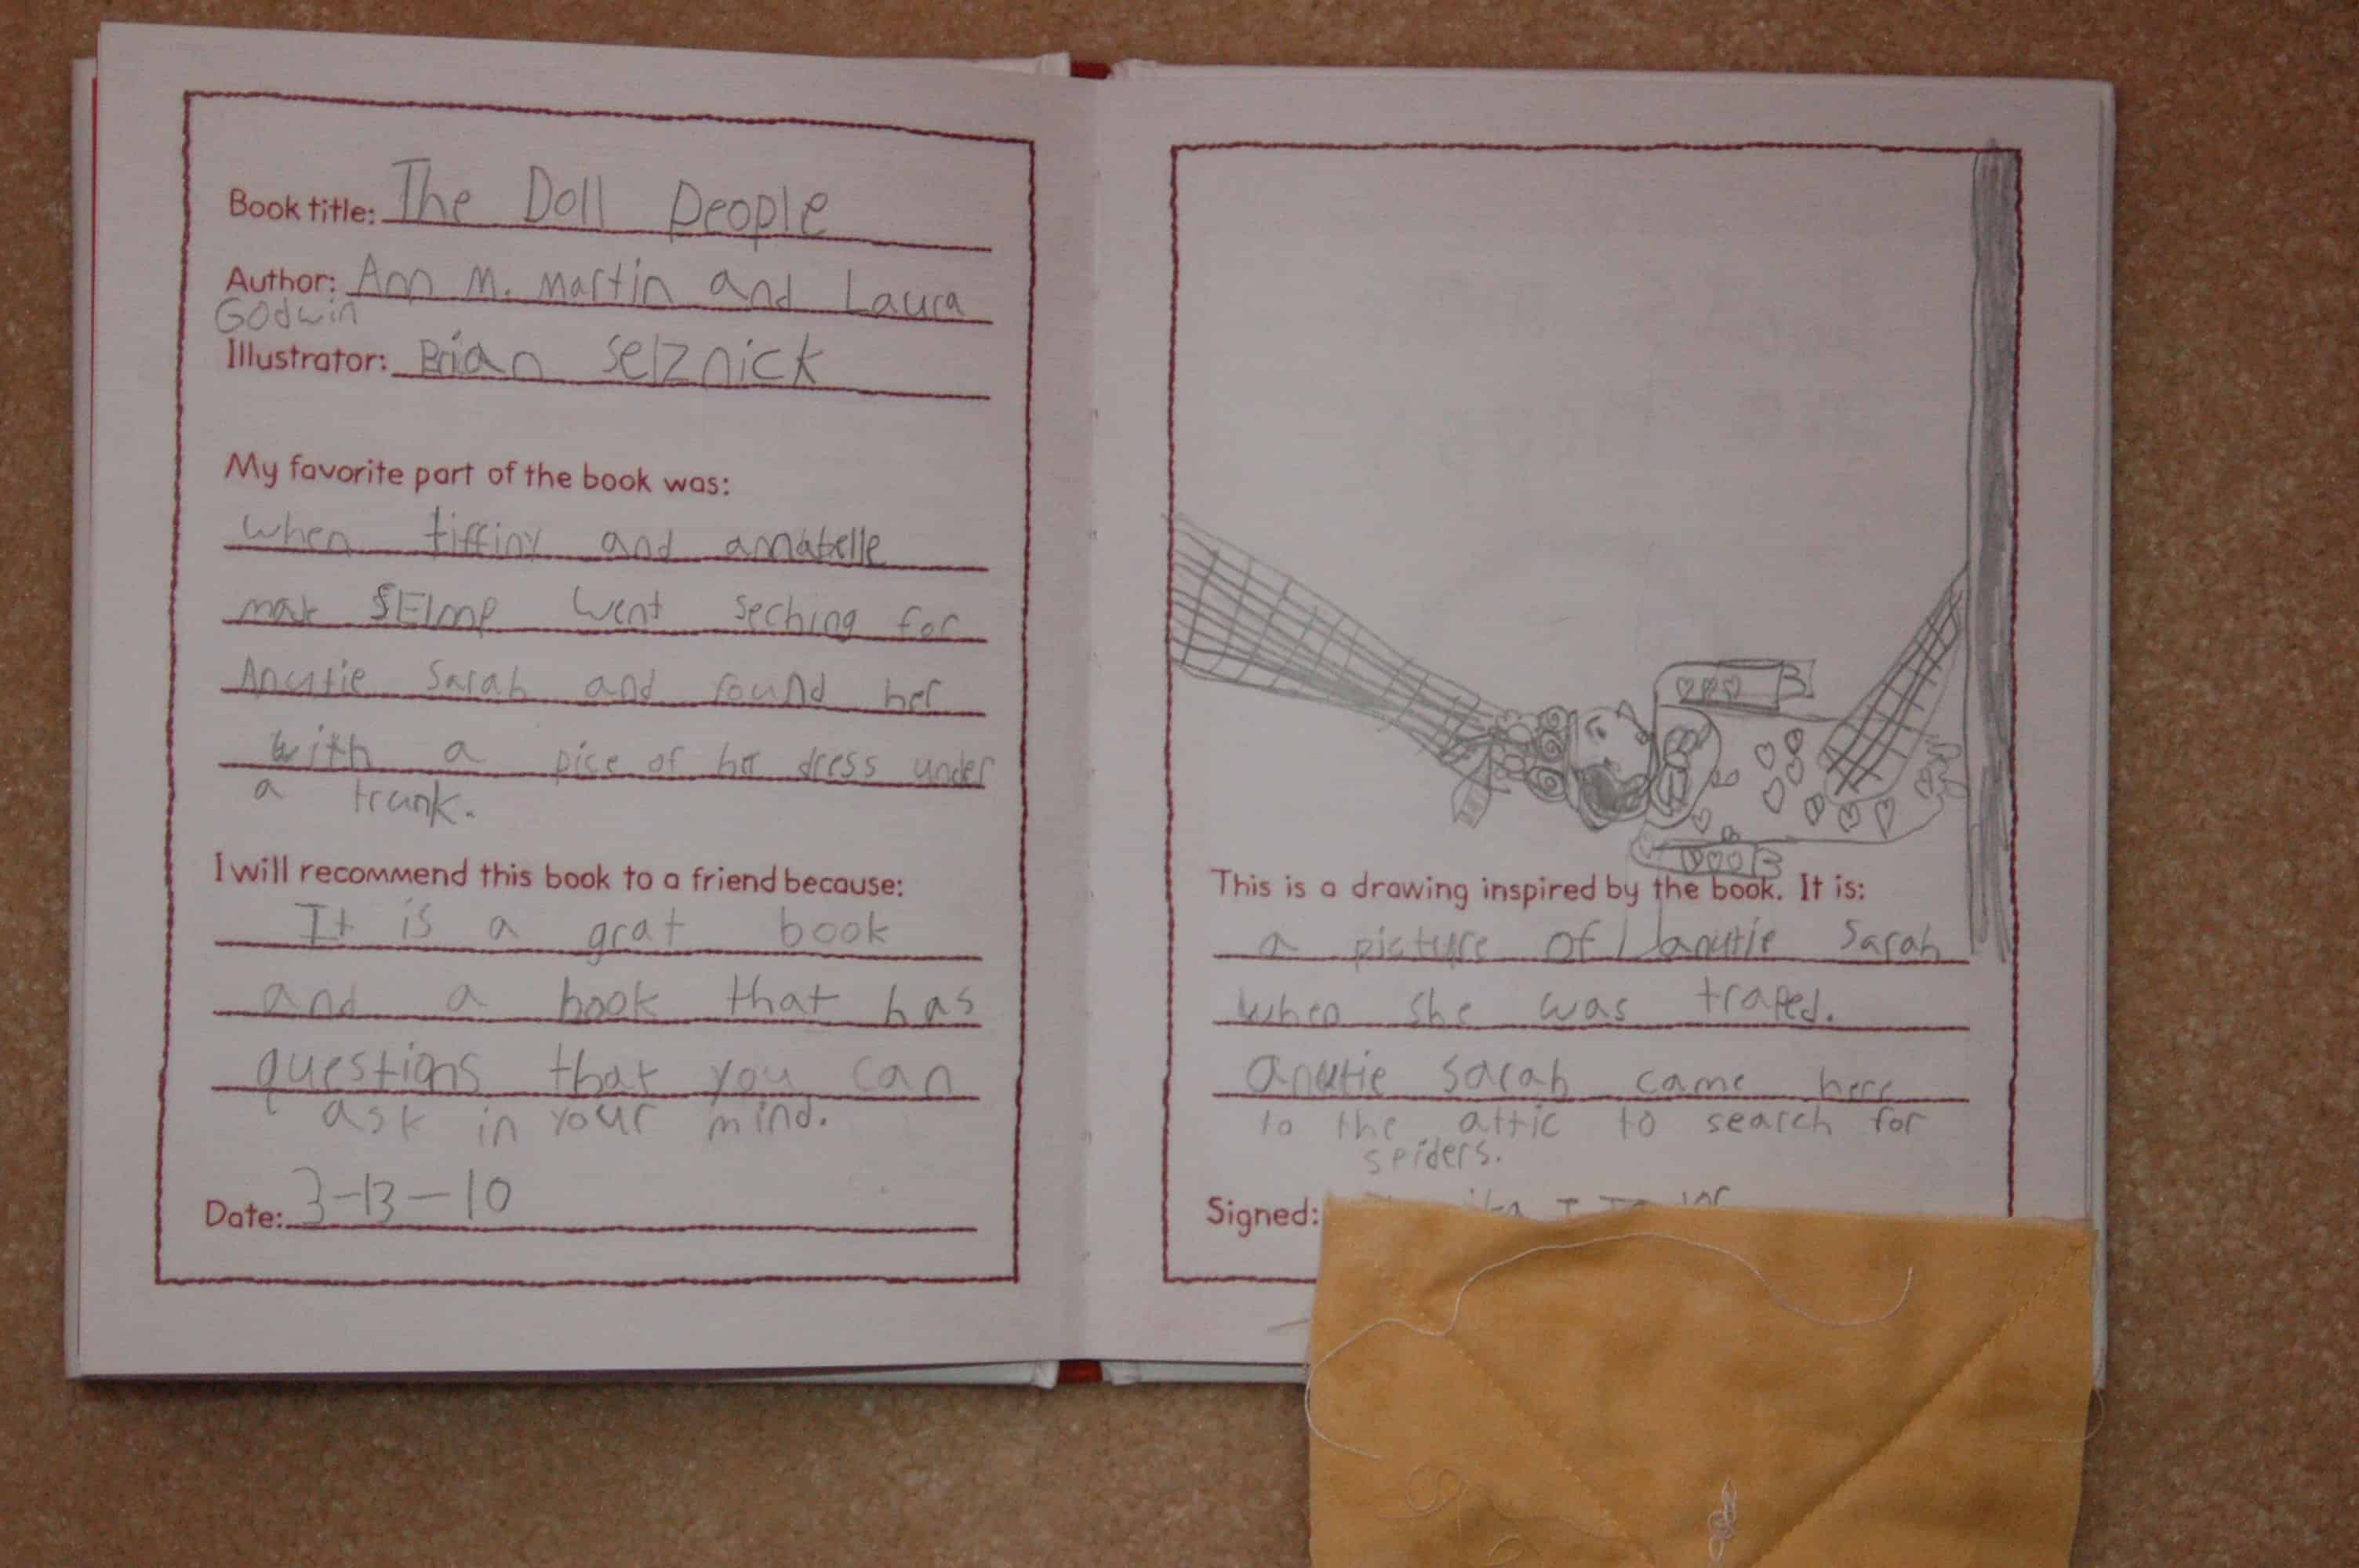 Book title: The Doll people
Author: Ann M. martin and Laura
Godwin
Illustrator: Brian Selznick
My favorite part of the book was:
when tiffiny and annabelle
SElmp went seching for
Anutie Sarah and found her
with a pice of her dress under
a trunk.
I will recommend this book to a friend because:
It is a grat book
and a book that has
questions that you can
ask in your mind.
Date: 3-13-10
This is a drawing inspired by the book. It is:
a picture of anutie Sarah
when she was traped.
anutie sarah came here
to the attic to search for
spiders.
Signed: